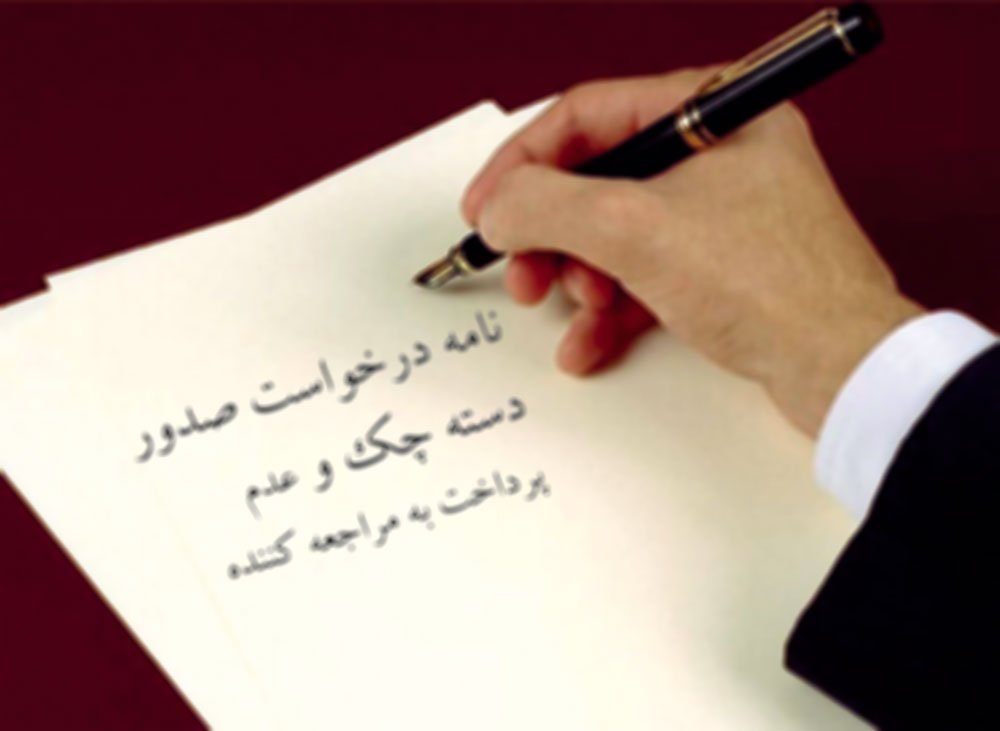 نامه درخواست صدور
دسته چک و عدم
پرداخت به مراجعه کننده